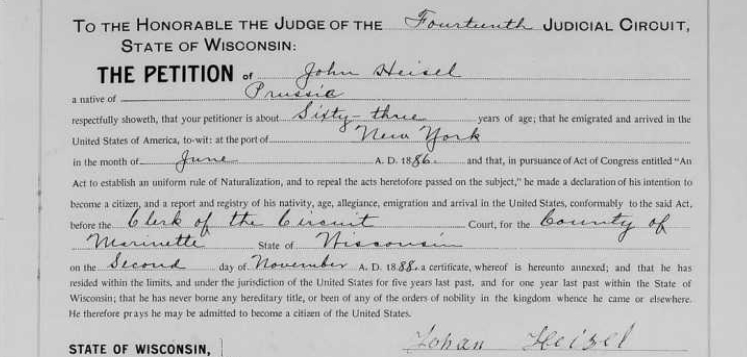 TO THE HONORABLE THE JUDGE OF THE Fourteenth JUDICIAL CIRCUIT,
STATE OF WISCONSIN:
THE PETITION of John Heisel
a native of Prussia
respectfully showeth, that your petitioner is about Sixty-three years of age; that he emigrated and arrived in the
United States of America, to-wit: at the port of New York
in the month of June A. D. 1886. and that, in pursuance of Act of Congress entitled "An
Act to establish an uniform rule of Naturalization, and to repeal the acts heretofore passed on the subject," he made a declaration of his intention to
become a citizen, and a report and registry of his nativity, age, allegiance, emigration and arrival in the United States, conformably to the said Act,
before the Clerk of the Circuit Court, for the County of
Marinette State of Wisconsin
on the Second day of November A. D. 1888. a certificate, whereof is hereunto annexed; and that he has
resided within the limits, and under the jurisdiction of the United States for five years last past, and for one year last past within the State of
Wisconsin; that he has never borne any hereditary title, or been of any of the orders of nobility in the kingdom whence he came or elsewhere.
He therefore prays he may be admitted to become a citizen of the United States.
Johan Heisel
STATE OF WISCONSIN,